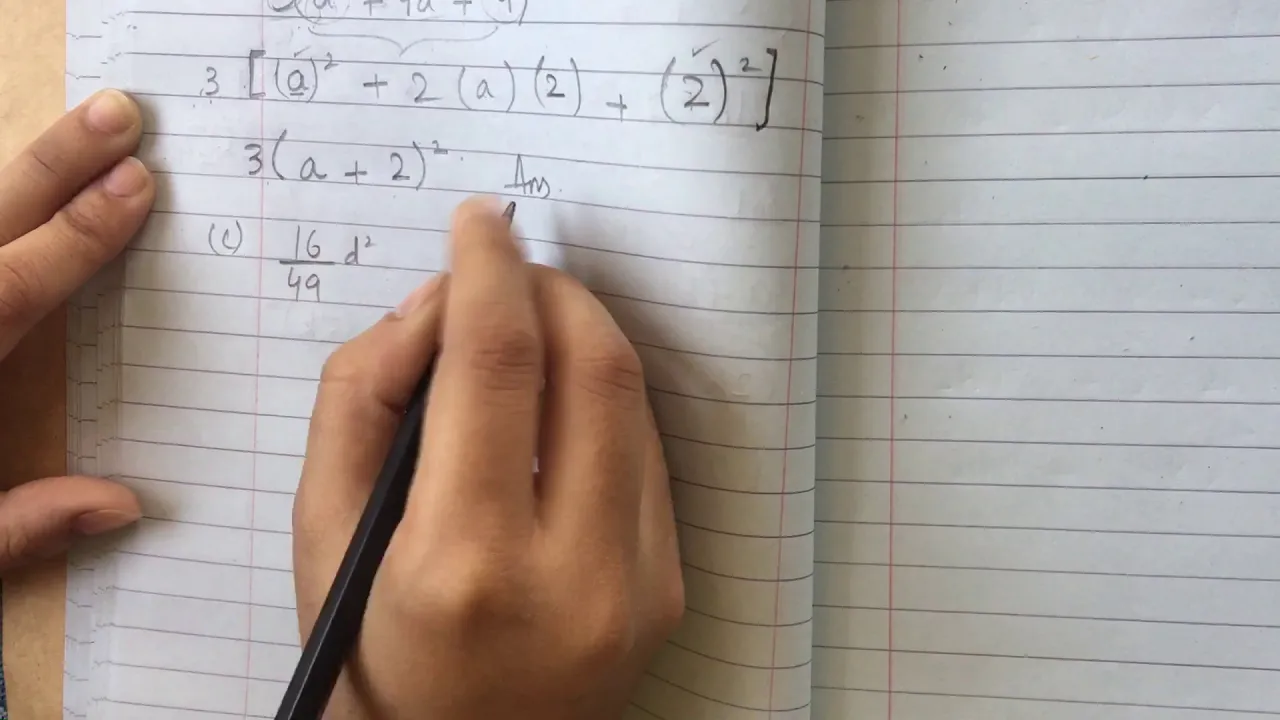 3 [(a)² + 2 (a) (2) + (2)²]
3(a + 2)² Ans.
(c) 16/49 d²